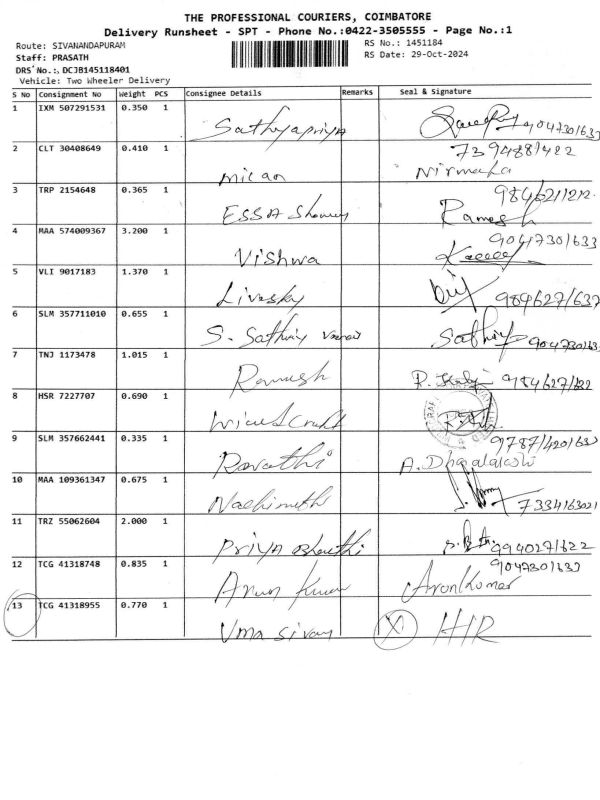 THE PROFESSIONAL COURIERS, COIMBATORE
Delivery Runsheet - SPT - Phone No.:0422-3505555 - Page No.:1
Route: SIVANANDAPURAM
RS No.: 1451184
Staff: PRASATH
RS Date: 29-Oct-2024
DRS No.: DCJB145118401
Vehicle: Two Wheeler Delivery
S No Consignment No Weight PCS Consignee Details Remarks Seal & Signature
1 IXM 507291531 0.350 1 Sathyapriya 9047301633
2 CLT 30408649 0.410 1 Milan 7394881422 Nirmala
3 TRP 2154648 0.365 1 ESSA 9846211212 Ramesh
4 MAA 574009367 3.200 1 Vishwa 9047301633
5 VLI 9017183 1.370 1 Livesky 984627/637
6 SLM 357711010 0.655 1 S. Sathiy Sathiy 904730163
7 TNJ 1173478 1.015 1 Ramesh 984627/622
8 HSR 7227707 0.690 1
9 SLM 357662441 0.335 1 Revathi 9787/420/633
10 MAA 109361347 0.675 1 Nachimuthu 7334163021
11 TRZ 55062604 2.000 1 Priya Bharathi 994027/622
12 TCG 41318748 0.835 1 Arun Kumar 9047301633 Arunkumar
13 TCG 41318955 0.770 1 Uma Sivam X HIR